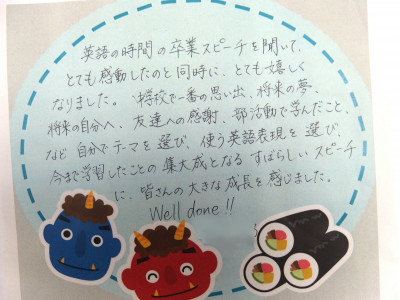 英語の時間の卒業スピーチを聞いて、
とても感動したのと同時に、とても嬉しく
なりました。学校で一番の思い出、将来の夢、
将来の自分へ、友達への感謝、部活動で学んだこと、
など自分でテーマを選び、使う英語表現を選び、
今まで学習したことの集大成となるすばらしいスピーチ
に、皆さんの大きな成長を感じました。
Well done!!